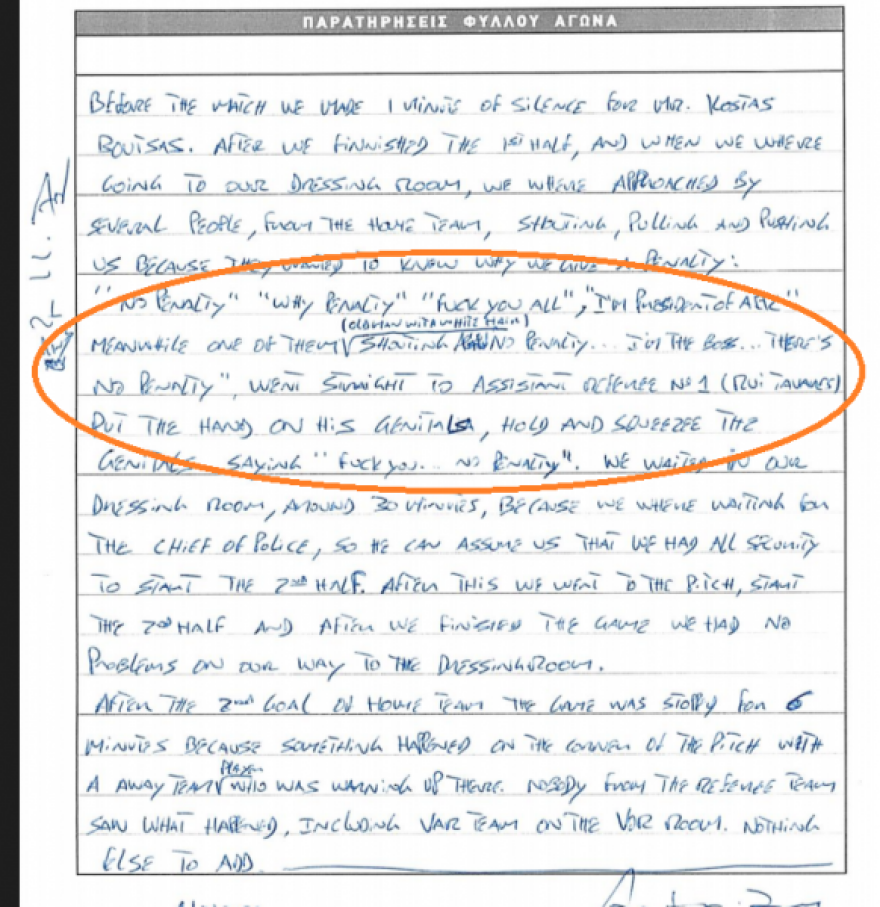 ΠΑΡΑΤΗΡΗΣΕΙΣ ΦΥΛΛΟΥ ΑΓΩΝΑ
BEFORE THE MATCH WE MADE 1 MINUTE OF SILENCE FOR MR. KOSTAS
BOUTSAS. AFTER WE FINNISHED THE 1ST HALF, AND WHEN WE WHERE
GOING TO OUR DRESSING ROOM, WE WHERE APPROACHED BY
SEVERAL PEOPLE, FROM THE HOME TEAM, SHOUTING, PULLING AND PUSHING
US BECAUSE THEY WANTED TO KNEW WHY WE GIVE A PENALTY:
"NO PENALTY" "WHY PENALTY" "FUCK YOU ALL", "I'M PRESIDENT OF AEK"
(OLD MAN WITH WHITE HAIR)
MEANWHILE ONE OF THEM SHOUTING NO PENALTY... I'M THE BOSS... THERE'S
NO PENALTY", WENT STRAIGHT TO ASSISTANT REFEREE Nº 1 (RUI TAVARES)
PUT THE HAND ON HIS GENITALS, HOLD AND SQUEEZEE THE
GENITALS SAYING "FUCK YOU... NO PENALTY". WE WAITED IN OUR
DRESSING ROOM, AROUND 30 MINUTES, BECAUSE WE WHERE WAITING FOR
THE CHIEF OF POLICE, SO HE CAN ASSUME US THAT WE HAD ALL SECURITY
TO START THE 2nd HALF. AFTER THIS WE WENT TO THE PITCH, START
THE 2nd HALF AND AFTER WE FINISHED THE GAME WE HAD NO
PROBLEMS ON OUR WAY TO THE DRESSINGROOM.
AFTER THE 2nd GOAL OF HOME TEAM THE GAME WAS STOPPY FOR 6
MINUTES BECAUSE SOMETHING HAPPENED ON THE CORNER OF THE PITCH WITH
PLAYER
A AWAY TEAM WHO WAS WARNING UP THERE. NOBODY FROM THE REFEREE TEAM
SAW WHAT HAPENED, INCLUDING VAR TEAM ON THE VOR ROOM. NOTHING
ELSE TO ADD